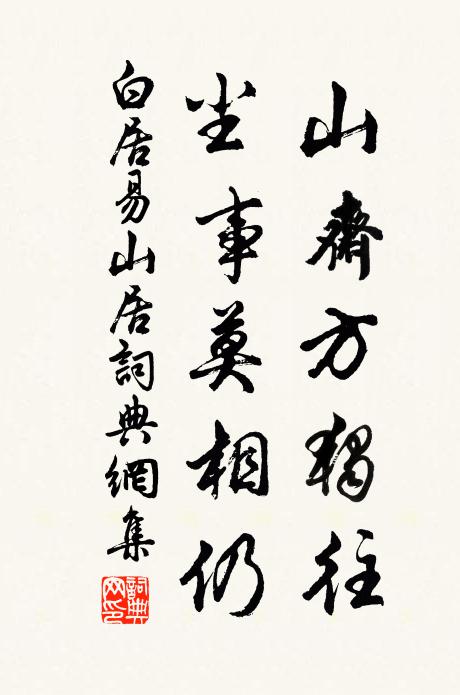 山齋方獨往
尘事莫相仍
白居易山居詞典網集
詞典网印